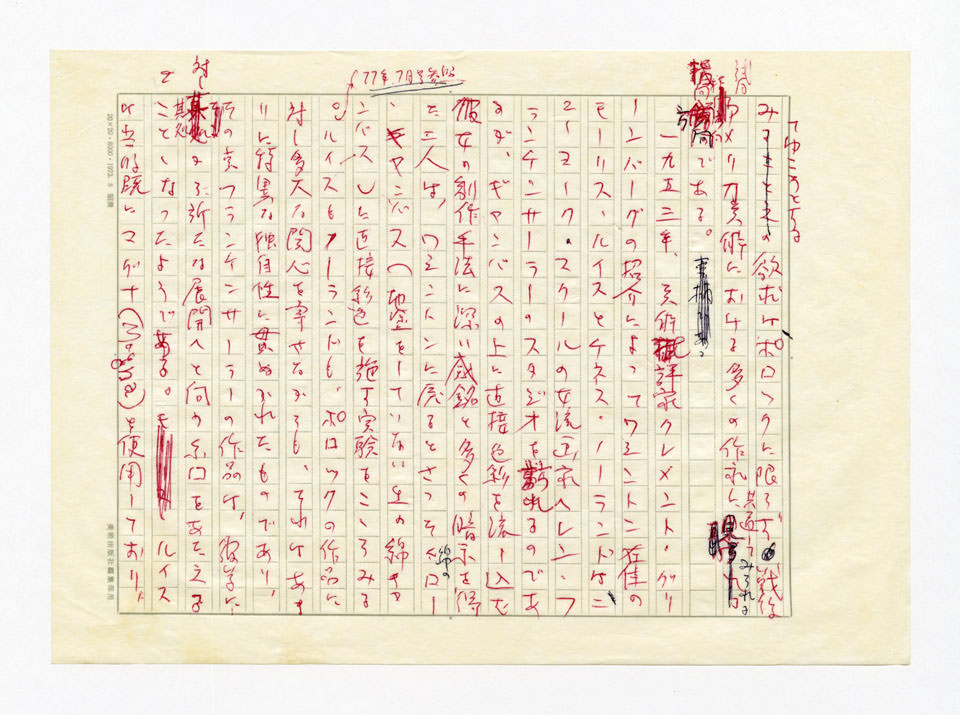 てゆこうとする
の欲求はポロックに限らず戦後
アメリカ美術における多くの作家に共通してみられる
方向である。
一九五三年、美術評家クレメント・グリ
ーンバーグの紹介によってワシントン在住の
モーリス・ルイスとケネス・ノーランドはニ
ューヨーク・スクールの女流画家ヘレン・フ
ランケンサーラーのスタジオを訪れるのであ
るが、キャンバスの上に直接色彩を流し込む
彼女の創作手法に深い感銘と多くの暗示を得
た二人は、ワシントンに戻るとさっそく綿のロー
・キャンバス(地塗をしていない生の綿キャ
ンバス)に直接彩色を施す実験をこころみる
。ルイスもノーランドも、ポロックの作品に
対し多大な関心を寄せながらも、それはあま
りに特異な独自性に貫ぬかれたものであり、
フランケンサーラーの作品は、彼等に
対し新たな展開へと向う糸口をあたえる
ことになったようである。ルイス
は当時既にマグナ(Magna)を使用しており、
77年7月号参照
20×20・8000・1973. 8
美術出版社編集部用